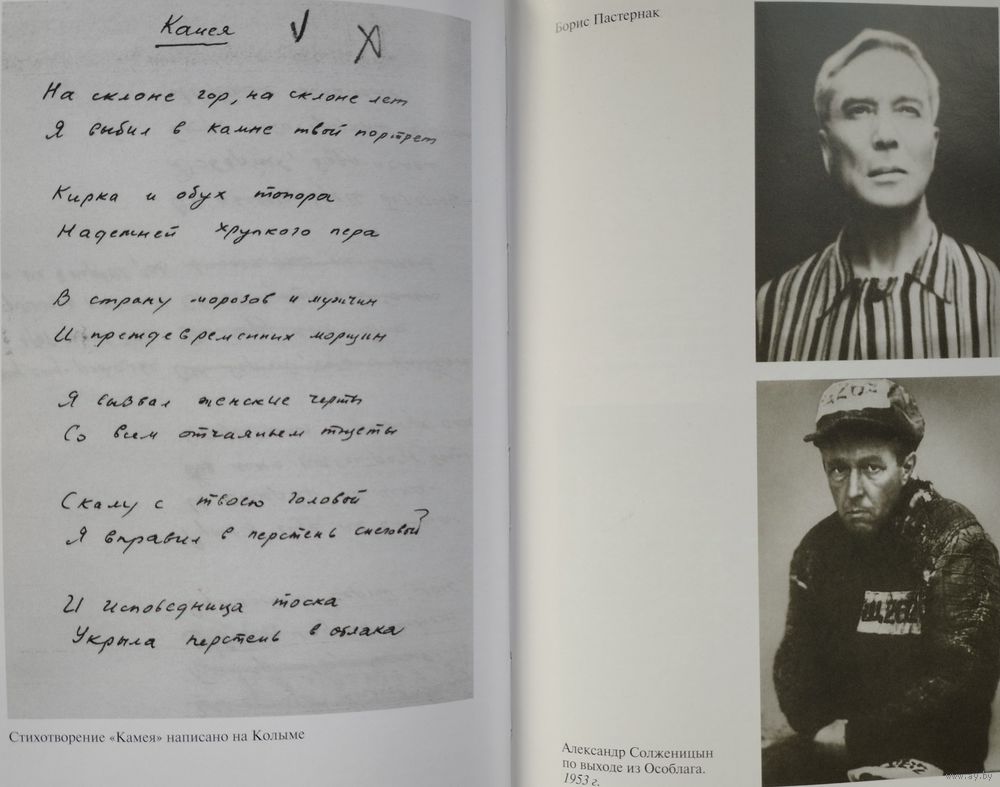 Камея
На склоне гор, на склоне лет
Я выбил в камне твой портрет
Кирка и обух топора
Надежней хрупкого пера
В страну морозов и мужчин
И преждевременных морщин
Я вызвал женские черты
Со всем отчаяньем тщеты
Скалу с твоею головой
Я вправил в перстень снеговой
И исповедница тоска
Укрыла перстень в облака
Стихотворение «Камея» написано на Колыме
Борис Пастернак
Александр Солженицын
по выходе из Особлага.
1953 г.
www.ay.by